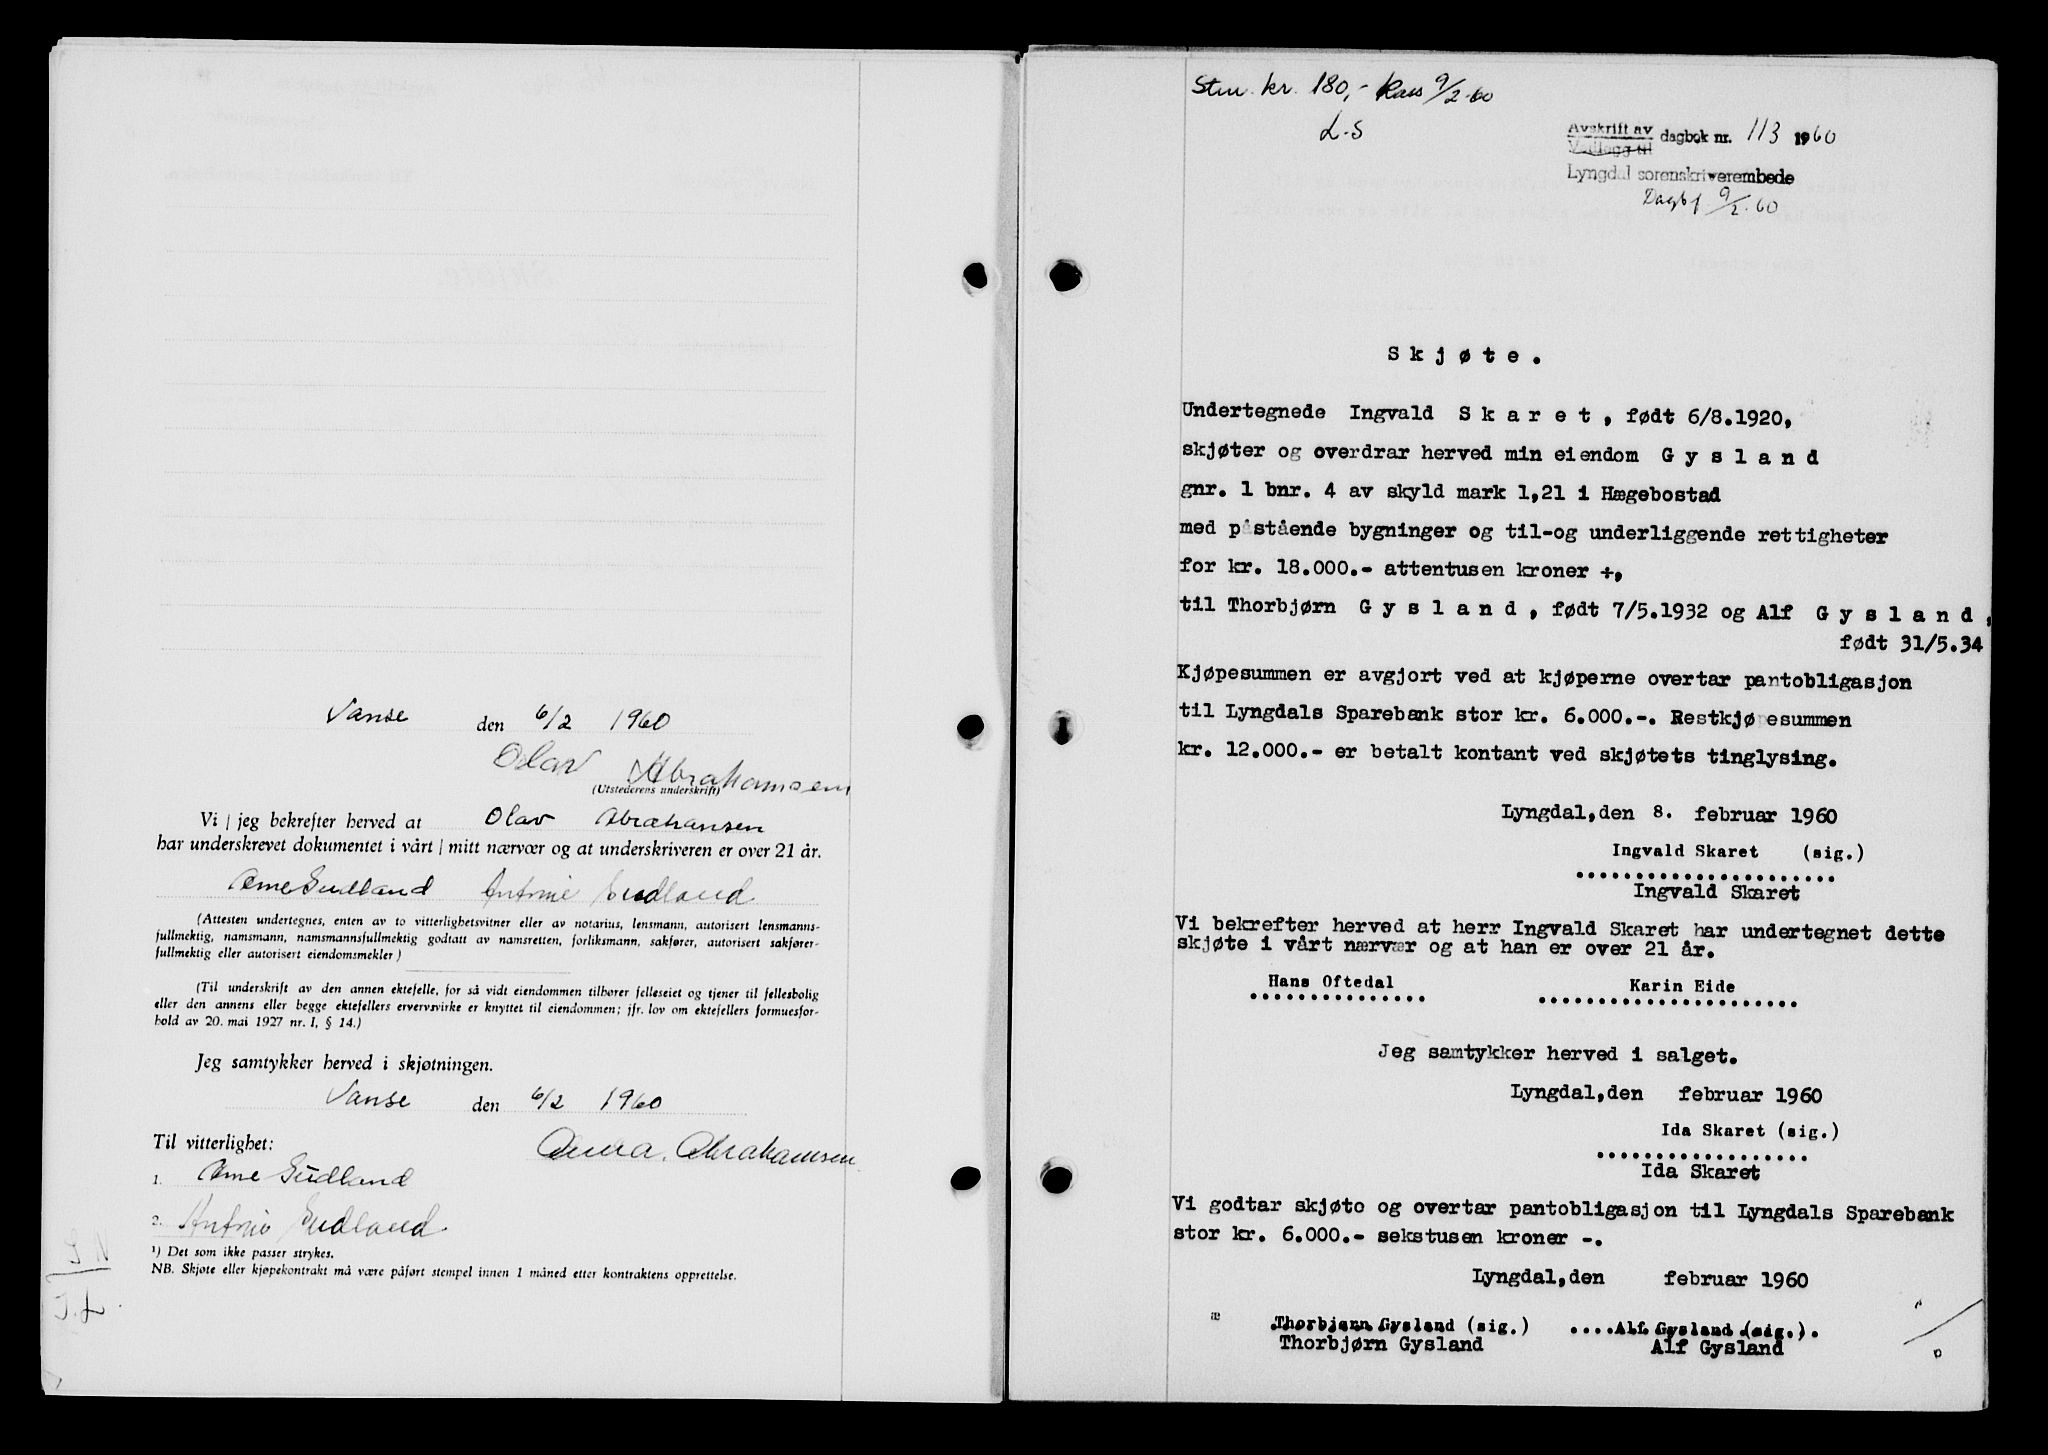 Vanse den 6/2 1960
Olav Abrahamsen
(Utstederens underskrift)
Vi / jeg bekrefter herved at Olav Abrahamsen
har underskrevet dokumentet i vårt / mitt nærvær og at underskriveren er over 21 år.
Arne Gudland Antonie Gudland
(Attesten undertegnes, enten av to vitterlighetsvitner eller av notarius, lensmann, autorisert lensmanns-
fullmektig, namsmann, namsmannsfullmektig godtatt av namsretten, forliksmann, sakfører, autorisert sakfører-
fullmektig eller autorisert eiendomsmekler)
(Til underskrift av den annen ektefelle, for så vidt eiendommen tilhører felleseiet og tjener til fellesbolig
eller den annens eller begge ektefellers ervervsvirke er knyttet til eiendommen; jfr. lov om ektefellers formuesfor-
hold av 20. mai 1927 nr. 1, § 14.)
Jeg samtykker herved i skjøtningen.
Vanse den 6/2 1960
Til vitterlighet:
Anna Abrahamsen
1. Arne Gudland
2. Antonie Gudland
¹) Det som ikke passer strykes.
NB. Skjøte eller kjøpekontrakt må være påført stempel innen 1 måned etter kontraktens opprettelse.
Stm. kr. 180,- Kass 9/2-60
L.S
Avskrift av
Vedlegg til dagbok nr. 113 1960
Lyngdal sorenskriverembede
Dagbf. 9/2.60
Skjøte.
Undertegnede Ingvald Skaret, født 6/8.1920,
skjøter og overdrar herved min eiendom Gysland
gnr. 1 bnr. 4 av skyld mark 1,21 i Hægebostad
med påstående bygninger og til-og underliggende rettigheter
for kr. 18.000.- attentusen kroner ÷,
til Thorbjørn Gysland, født 7/5.1932 og Alf Gysland,
født 31/5.34
Kjøpesummen er avgjort ved at kjøperne overtar pantobligasjon
til Lyngdals Sparebank stor kr. 6.000.-. Restkjøpesummen
kr. 12.000.- er betalt kontant ved skjøtets tinglysing.
Lyngdal,den 8. februar 1960
Ingvald Skaret (sig.)
Ingvald Skaret
Vi bekrefter herved at herr Ingvald Skaret har undertegnet dette
skjøte i vårt nærvær og at han er over 21 år.
Hans Oftedal Karin Eide
Jeg samtykker herved i salget.
Lyngdal,den februar 1960
Ida Skaret (sig.)
Ida Skaret
Vi godtar skjøto og overtar pantobligasjon til Lyngdals Sparebank
stor kr. 6.000.- sekstusen kroner -.
Lyngdal,den februar 1960
æ Thorbjørn Gysland (sig.) Alf Gysland (sig.)
Thorbjørn Gysland Alf Gysland